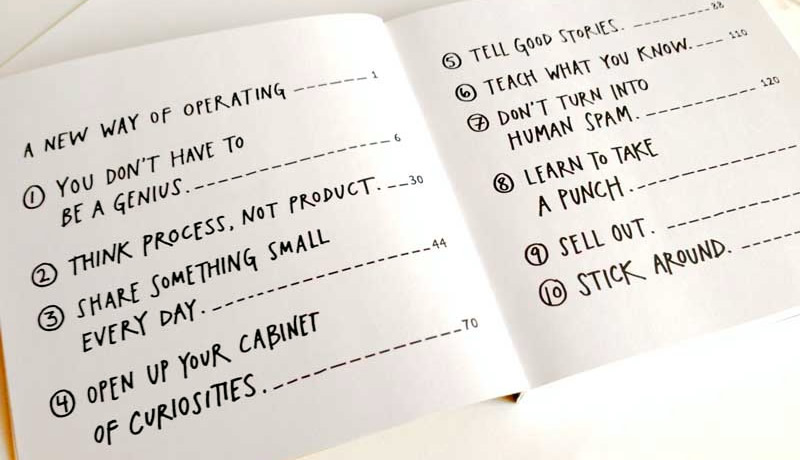 A NEW WAY OF OPERATING ------- 1
① YOU DON'T HAVE TO
BE A GENIUS. ---------------- 6
② THINK PROCESS, NOT PRODUCT. --- 30
③ SHARE SOMETHING SMALL
EVERY DAY. ------------------ 44
④ OPEN UP YOUR CABINET
OF CURIOSITIES. --------------- 70
⑤ TELL GOOD STORIES. -------- 88
⑥ TEACH WHAT YOU KNOW. ---- 110
⑦ DON'T TURN INTO
HUMAN SPAM. ----------- 120
⑧ LEARN TO TAKE
A PUNCH. -------------
⑨ SELL OUT. -----------
⑩ STICK AROUND. -----